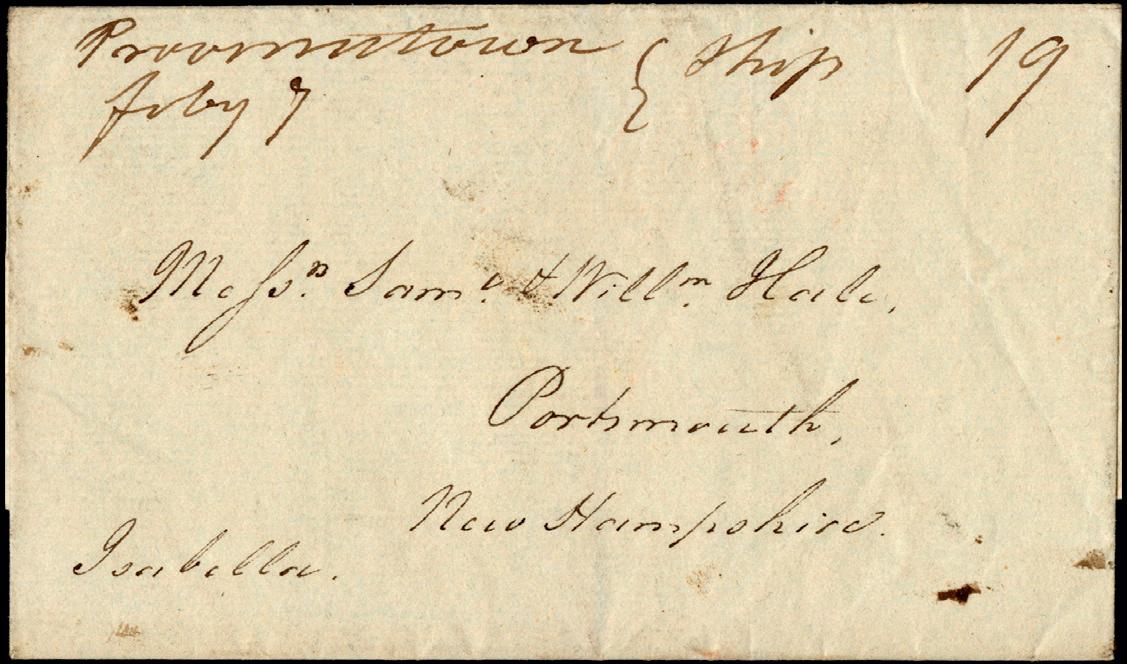 Provincetown } Ship 19
feby 7
Messrs. Saml. & Willm. Hale,
Portsmouth,
New Hampshire.
Isabella.